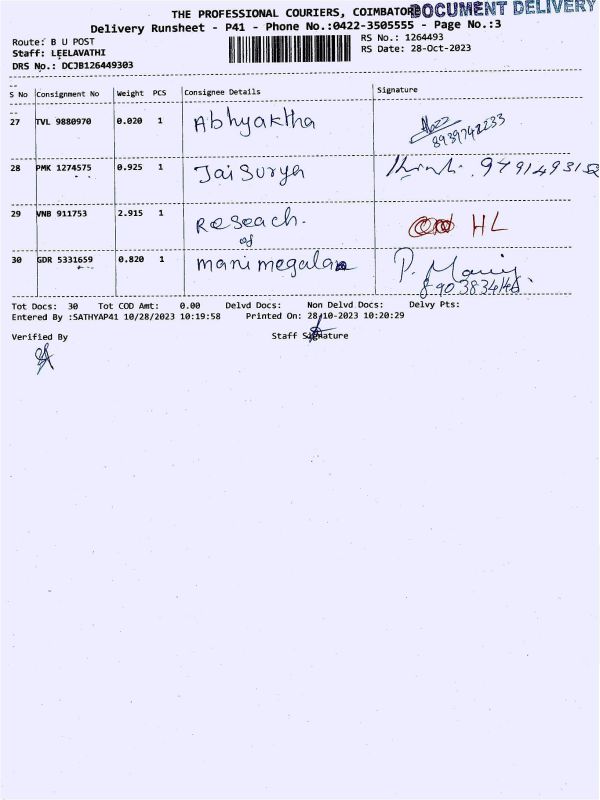 THE PROFESSIONAL COURIERS, COIMBATORE
DOCUMENT DELIVERY
Delivery Runsheet - P41 - Phone No.:0422-3505555 - Page No.:3
Route: B U POST
RS No.: 1264493
Staff: LEELAVATHI
RS Date: 28-Oct-2023
DRS No.: DCJB126449303
S No Consignment No Weight PCS Consignee Details Signature
27 TVL 9880970 0.020 1 Abhyaktha
8939742233
28 PMK 1274575 0.925 1 Jai Surya 9791493152
29 VNB 911753 2.915 1 Reseach. HL
of
30 GDR 5331659 0.820 1 manimegala P.
Tot Docs: 30 Tot COD Amt: 0.00 Delvd Docs: Non Delvd Docs: Delvy Pts:
Entered By :SATHYAP41 10/28/2023 10:19:58 Printed On: 28-10-2023 10:20:29
Verified By Staff Signature